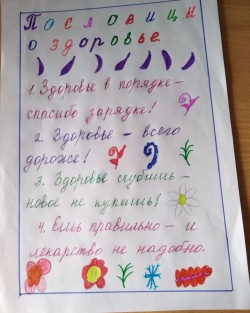 Пословицы
о здоровье.
1. Здоровье в порядке –
спасибо зарядке!
2. Здоровье – всего
дороже!
3. Здоровье сгубишь –
новое не купишь!
4. Ешь правильно – и
лекарство не надобно.